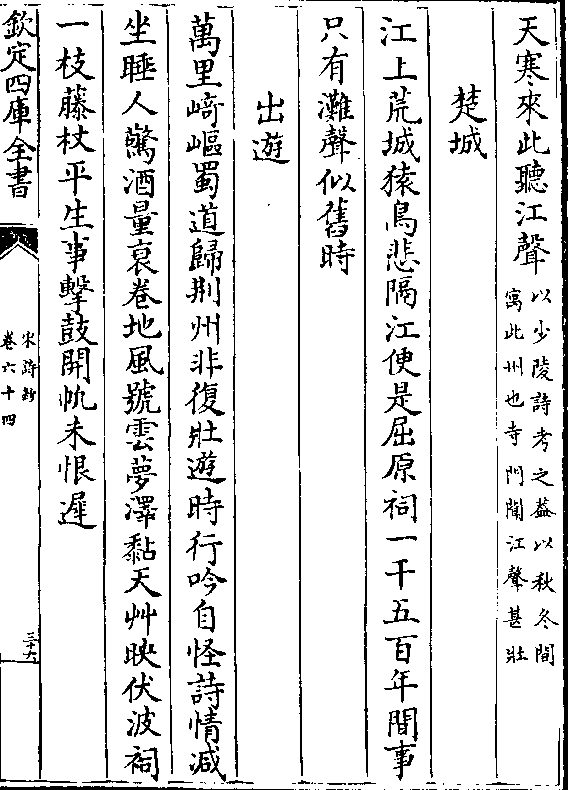 天寒來此聽江聲以少陵詩考之葢以秋冬間
寓此州也寺門聞江聲甚壯
楚城
江上荒城猿鳥悲隔江便是屈原祠一千五百年間事
只有灘聲似舊時
出遊
萬里﨑嶇蜀道歸荆州非復壯遊時行吟自怪詩情减
坐睡人驚酒量衰卷地風號雲夢澤黏天艸映伏波祠
一枝藤杖平生事擊鼓開帆未恨遲
欽定四庫全書
宋詩鈔
卷六十四
三十六